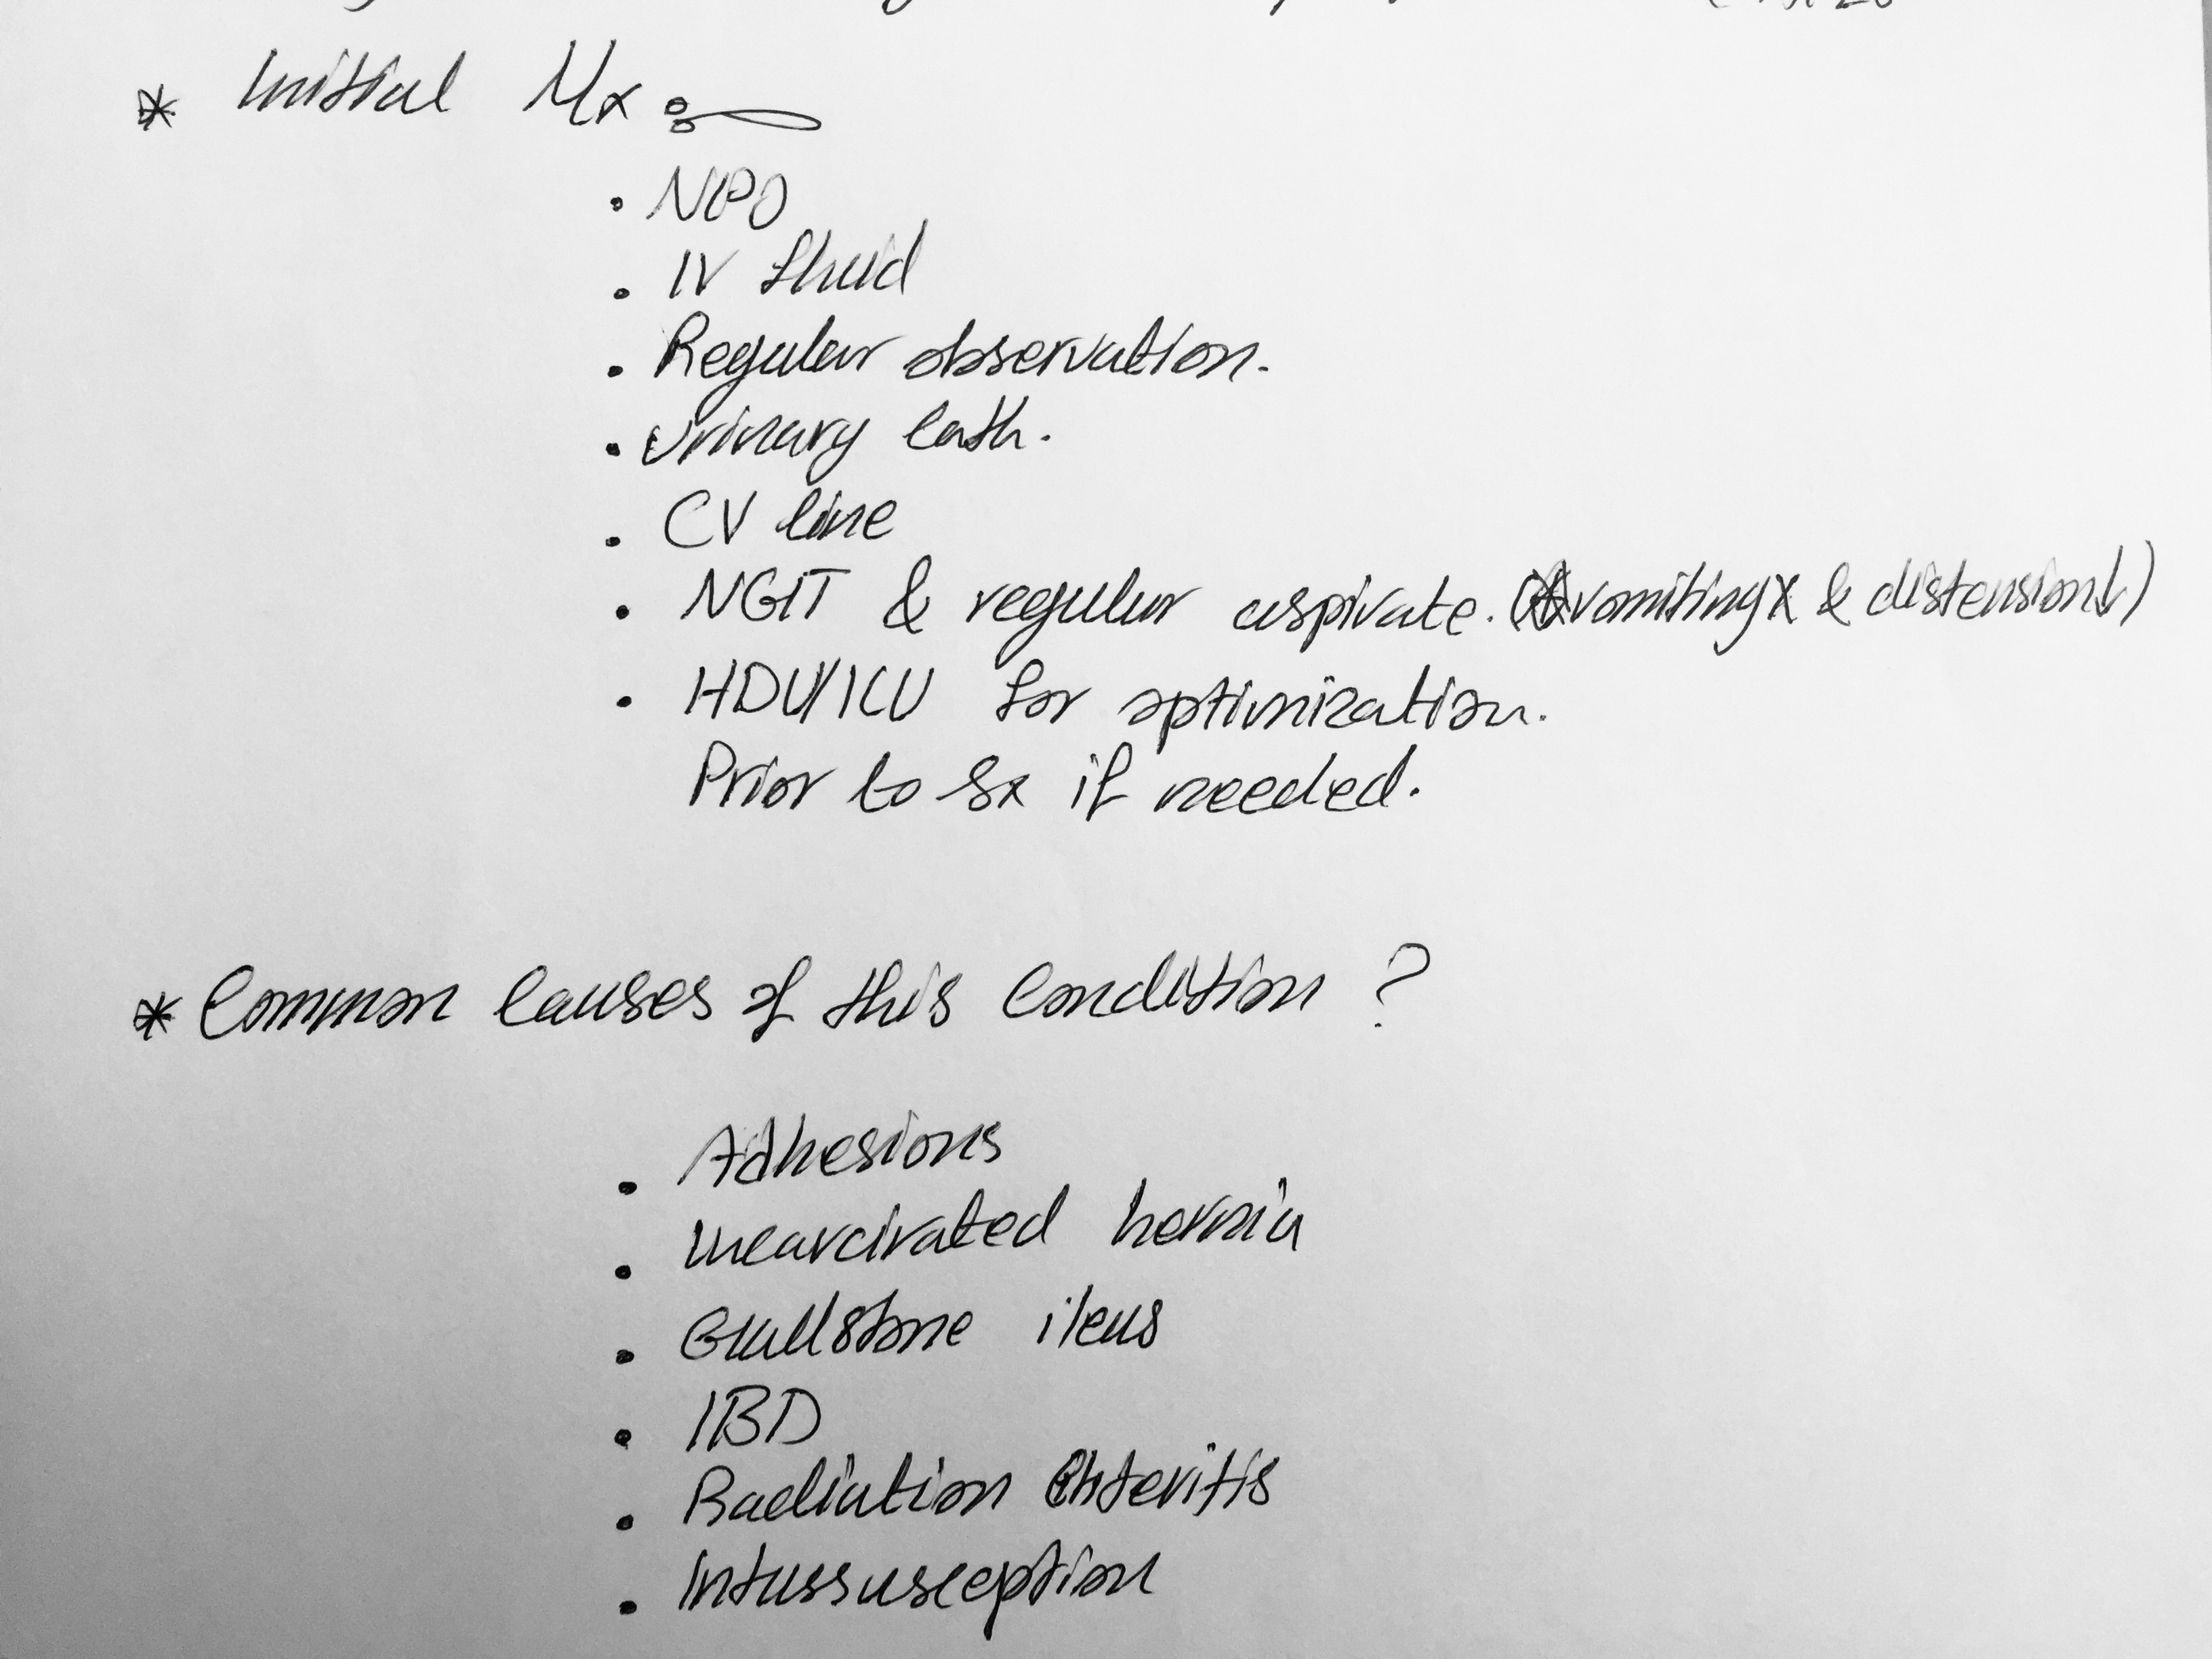 * Initial Mx :-
• NPO
• IV fluid
• Regular observation.
• Urinary Cath.
• CV line
• NGT & regular aspirate. (vomiting X & distension ↓)
• HDU/ICU for optimization.
Prior to Sx if needed.
* Common Causes of this Condition ?
• Adhesions
• Incarcirated hernia
• Gallstone ileus
• IBD
• Radiation Enteritis
• Intussusception